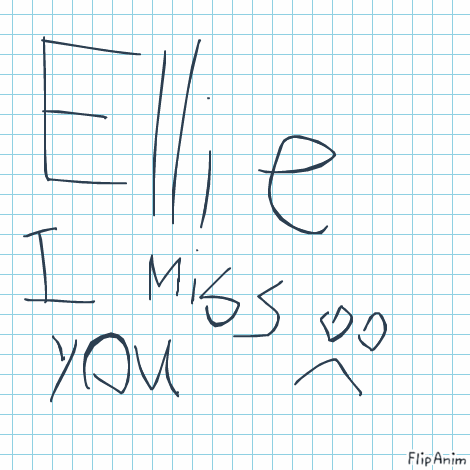 Ellie
I Miss
you
FlipAnim